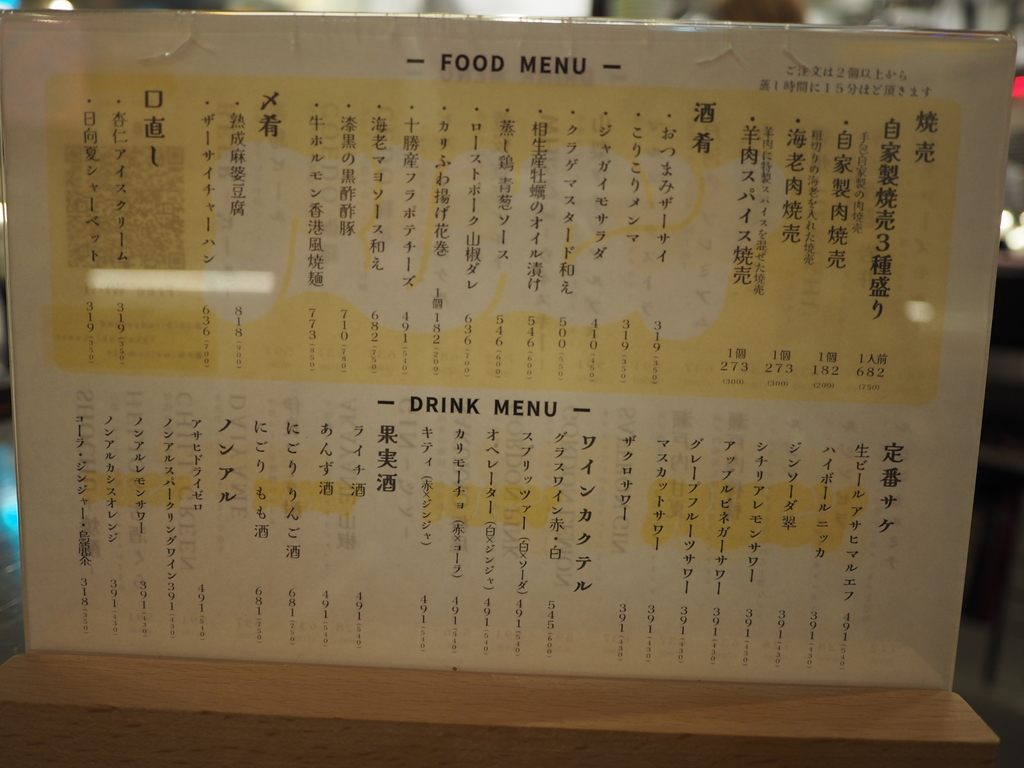 FOOD MENU
ご注文は２個以上から
蒸し時間に１５分ほど頂きます
焼売
自家製焼売３種盛り 1人前 682 (750)
手包み自家製の肉焼売
・自家製肉焼売 1個 182 (200)
粗切りの海老を入れた焼売
・海老肉焼売 1個 273 (300)
羊肉に特製スパイスを混ぜた焼売
・羊肉スパイス焼売 1個 273 (300)
酒肴
・おつまみザーサイ 319 (350)
・こりこりメンマ 319 (350)
・ジャガイモサラダ 410 (450)
・クラゲマスタード和え 500 (550)
・相生産牡蠣のオイル漬け 546 (600)
・蒸し鶏 青葱ソース 546 (600)
・ローストポーク山椒ダレ 636 (700)
・カリふわ揚げ花巻 1個 182 (200)
・十勝産フラポテチーズ 491 (540)
・海老マヨソース和え 682 (750)
・漆黒の黒酢酢豚 710 (780)
・牛ホルモン香港風焼麺 773 (850)
〆肴
・熟成麻婆豆腐 818 (900)
・ザーサイチャーハン 636 (700)
口直し
・杏仁アイスクリーム 319 (350)
・日向夏シャーベット 319 (350)
DRINK MENU
定番サケ
生ビール アサヒマルエフ 491 (540)
ハイボール ニッカ 391 (430)
ジンソーダ 翠 391 (430)
シチリアレモンサワー 391 (430)
アップルビネガーサワー 391 (430)
グレープフルーツサワー 391 (430)
マスカットサワー 391 (430)
ザクロサワー 391 (430)
ワインカクテル
グラスワイン 赤・白 545 (600)
スプリッツァー (白×ソーダ) 491 (540)
オペレーター (白×ジンジャ) 491 (540)
カリモーチョ (赤×コーラ) 491 (540)
キティ (赤×ジンジャ) 491 (540)
果実酒
ライチ酒 491 (540)
あんず酒 491 (540)
にごり りんご酒 681 (750)
にごり もも酒 681 (750)
ノンアル
アサヒドライゼロ 491 (540)
ノンアルスパークリングワイン 391 (430)
ノンアルレモンサワー 391 (430)
ノンアルカシスオレンジ 391 (430)
コーラ・ジンジャー・烏龍茶 318 (350)